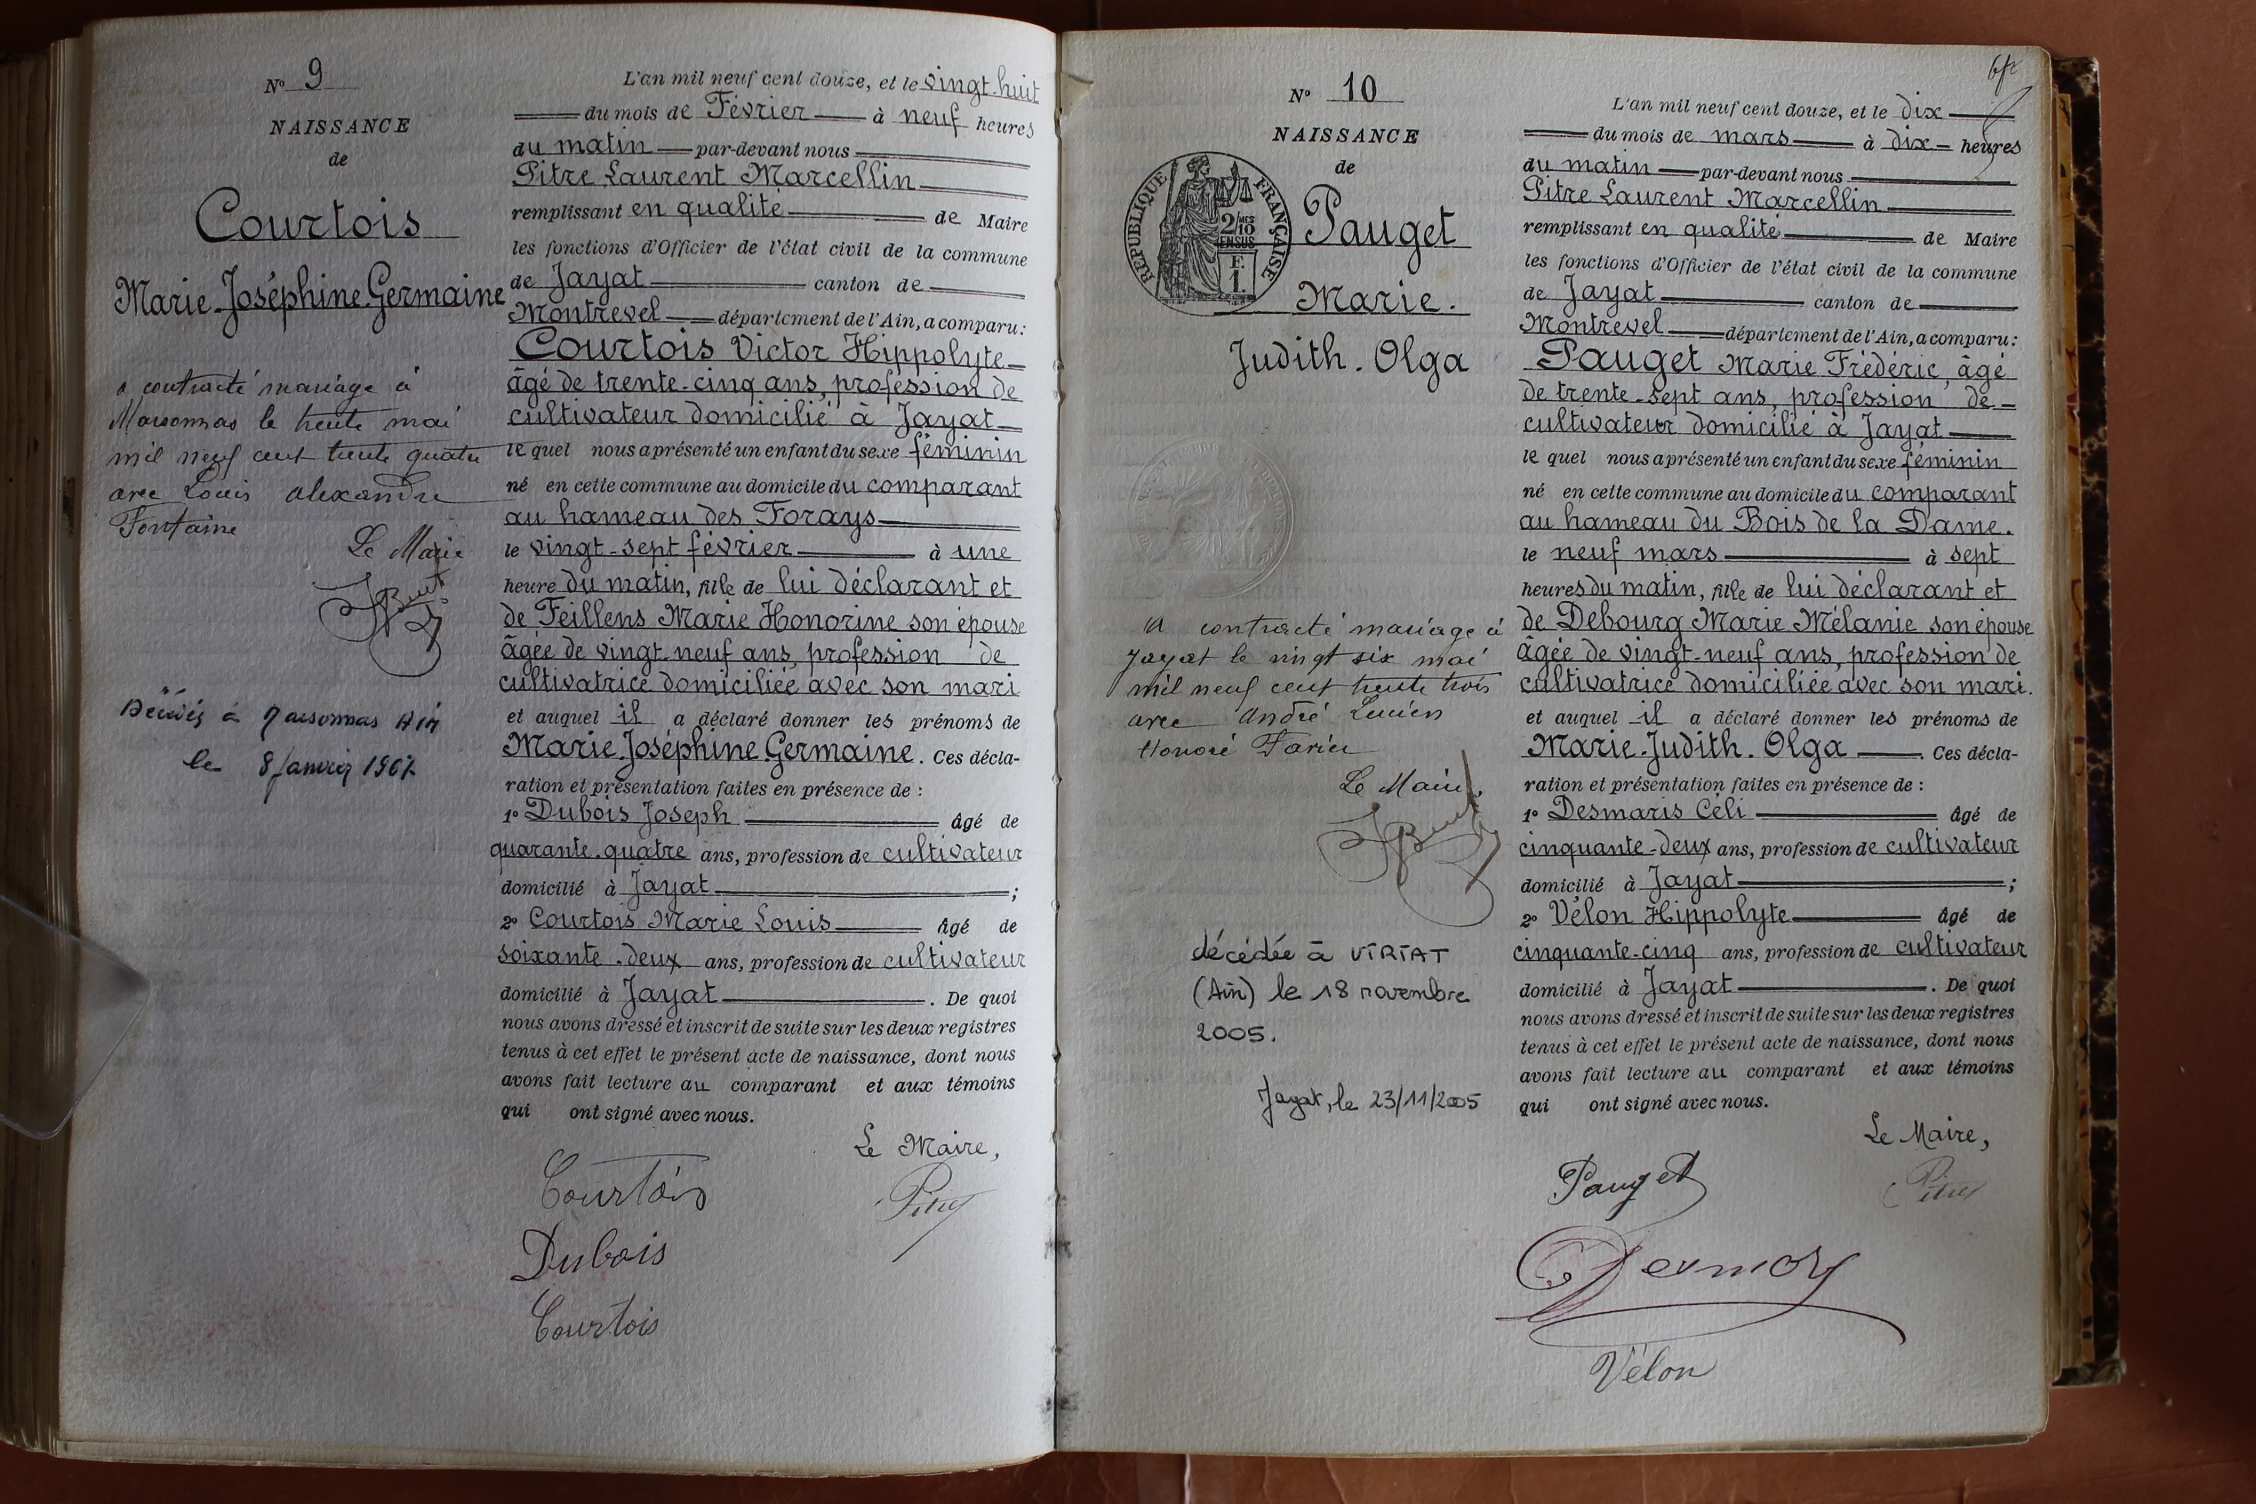 N° 9
NAISSANCE
de
Courtois
Marie-Joséphine-Germaine
a contracté mariage à
Marsonnas le trente mai
mil neuf cent trente quatre
avec Louis Alexandre
Fontaine
Le Maire
Décédée à Marsonnas Ain
le 8 Janvier 1967
L'an mil neuf cent douze, et le vingt-huit
du mois de Février à neuf heures
du matin par-devant nous
Pitre Laurent Marcellin
remplissant en qualité de Maire
les fonctions d'Officier de l'état civil de la commune
de Jayat canton de
Montrevel département de l'Ain, a comparu:
Courtois Victor Hippolyte
âgé de trente-cinq ans, profession de
cultivateur domicilié à Jayat
le quel nous a présenté un enfant du sexe féminin
né en cette commune au domicile du comparant
au hameau des Forays
le vingt-sept février à une
heure du matin, fille de lui déclarant et
de Feillens Marie Honorine son épouse
âgée de vingt-neuf ans, profession de
cultivatrice domiciliée avec son mari
et auquel il a déclaré donner les prénoms de
Marie-Joséphine-Germaine. Ces décla-
ration et présentation faites en présence de :
1° Dubois Joseph âgé de
quarante-quatre ans, profession de cultivateur
domicilié à Jayat ;
2° Courtois Marie Louis âgé de
soixante-deux ans, profession de cultivateur
domicilié à Jayat . De quoi
nous avons dressé et inscrit de suite sur les deux registres
tenus à cet effet le présent acte de naissance, dont nous
avons fait lecture au comparant et aux témoins
qui ont signé avec nous.
Le Maire,
Courtois
Pitre
Dubois
Courtois
N° 10
NAISSANCE
de
RÉPUBLIQUE FRANÇAISE
2/10
EN SUS
F.
1.
Pauget
Marie.
Judith. Olga
A contracté mariage à
Jayat le vingt six mai
mil neuf cent trente trois
avec André Lucien
Honoré
Le Maire,
décédée à VIRIAT
(Ain) le 18 novembre
2005.
Jayat, le 23/11/2005
L'an mil neuf cent douze, et le dix
du mois de mars à dix heures
du matin par-devant nous
Pitre Laurent Marcellin
remplissant en qualité de Maire
les fonctions d'Officier de l'état civil de la commune
de Jayat canton de
Montrevel département de l'Ain, a comparu:
Pauget Marie Frédéric, âgé
de trente-sept ans, profession de
cultivateur domicilié à Jayat
le quel nous a présenté un enfant du sexe féminin
né en cette commune au domicile du comparant
au hameau du Bois de la Dame.
le neuf mars à sept
heures du matin, fille de lui déclarant et
de Debourg Marie Mélanie son épouse
âgée de vingt-neuf ans, profession de
cultivatrice domiciliée avec son mari.
et auquel il a déclaré donner les prénoms de
Marie-Judith. Olga . Ces décla-
ration et présentation faites en présence de :
1° Desmaris Céli âgé de
cinquante-deux ans, profession de cultivateur
domicilié à Jayat ;
2° Vélon Hippolyte âgé de
cinquante-cinq ans, profession de cultivateur
domicilié à Jayat . De quoi
nous avons dressé et inscrit de suite sur les deux registres
tenus à cet effet le présent acte de naissance, dont nous
avons fait lecture au comparant et aux témoins
qui ont signé avec nous.
Le Maire,
Pauget
Pitre
Vélon